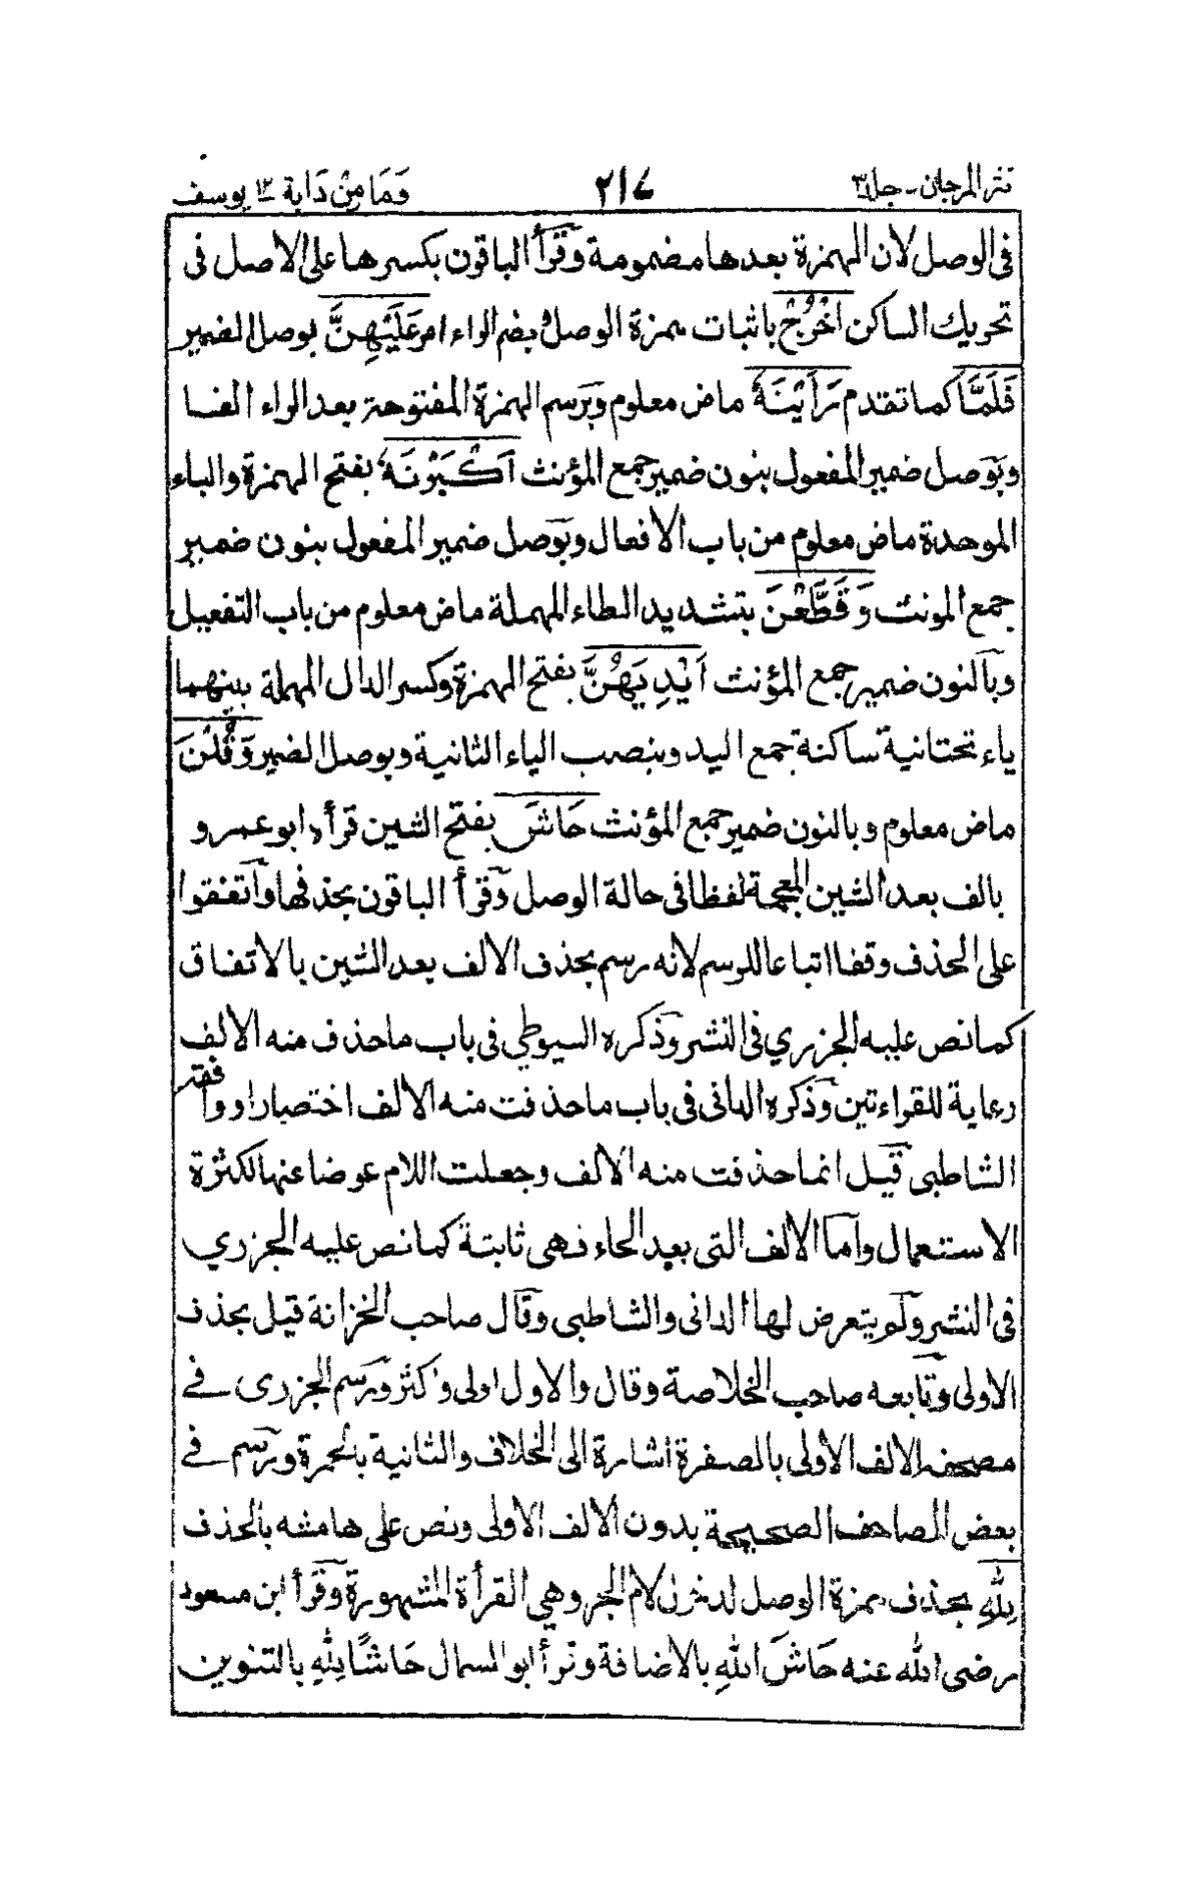 نثر المرجان - جلد ٣ ٢١٧ وَمَا مِنْ دَابة ١٢ يوسف
فى الوصل لان الهمزة بعدها مضمومة وقرأ الباقون بكسرها على الاصل فى
تحريك الساكن اخْرُجْ باثبات همزة الوصل وبضم الراء امر عَلَيْهِنَّ بوصل الضمير
فَلَمَّا كما تقدم رَأَيْنَهُ ماض معلوم وبرسم الهمزة المفتوحة بعد الراء الفا
وبوصل ضمير المفعول بنون ضمير جمع المؤنث اَكْبَرْنَهُ بفتح الهمزة والباء
الموحدة ماض معلوم من باب الافعال وبوصل ضمير المفعول بنون ضمير
جمع المونث وَقَطَّعْنَ بتشديد الطاء المهملة ماض معلوم من باب التفعيل
وبالنون ضمير جمع المؤنث اَيْدِيَهُنَّ بفتح الهمزة وكسر الدال المهملة بينهما
ياء تحتانية ساكنة جمع اليد وبنصب الياء الثانية وبوصل الضمير وَقُلْنَ
ماض معلوم وبالنون ضمير جمع المؤنث حَاشَ بفتح الشين قرأه ابو عمرو
بالف بعد الشين المعجمة لفظا فى حالة الوصل وقرأ الباقون بحذفها واتفقوا
على الحذف وقفا اتباعا للرسم لانه رسم بحذف الالف بعد الشين بالاتفاق
كما نص عليه الجزري فى النشر وذكره السيوطي فى باب ما حذف منه الالف
رعاية للقراءتين وذكره الدانى فى باب ما حذفت منه الالف اختصارا ووافقه
الشاطبى قيل انما حذفت منه الالف وجعلت اللام عوضا عنها لكثرة
الاستعمال واما الالف التى بعد الحاء فهى ثابتة كما نص عليه الجزري
فى النشر ولم يتعرض لها الدانى والشاطبى وقال صاحب الخزانة قيل بحذف
الاولى وتابعه صاحب الخلاصة وقال والاول اولى واكثر ورسم الجزرى فے
مصحفه الالف الاولى بالصفرة اشارة الى الخلاف والثانية بالحمرة ورسم فے
بعض المصاحف الصحيحة بدون الالف الاولى ونص على هامشه بالحذف
لِلّٰهِ بحذف همزة الوصل لدخول لام الجر وهي القرأة المشهورة وقرأ ابن مسعود
رضى الله عنه حَاشَ اللهِ بالاضافة وقرأ ابو السمال حَاشًا لِلّٰهِ بالتنوين